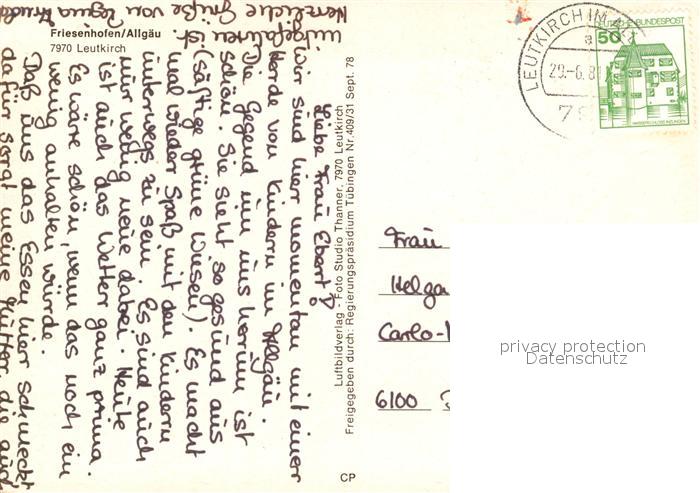 Friesenhofen/Allgäu
7970 Leutkirch
Liebe Frau Ebert,
wir sind hier momentan mit einer
Horde von Kindern im Allgäu.
Die Gegend um uns herum ist
schön. Sie sieht so gesund aus
(saftige grüne Wiesen). Es macht
mal wieder Spaß mit den Kindern
unterwegs zu sein. Es sind auch
nur wenig neue dabei. Heute
ist auch das Wetter ganz prima.
Es wäre schön, wenn das noch ein
wenig anhalten würde.
Daß uns das Essen hier schmeckt
dafür sorgt meine Mutter, die auch
mitgefahren ist.
Herzliche Grüße von
Luftbildverlag - Foto Studio Thanner, 7970 Leutkirch
Freigegeben durch: Regierungspräsidium Tübingen Nr. 409/31 Sept. 78
CP
LEUTKIRCH IM
a
29.-6.8
79
DEUTSCHE BUNDESPOST
50
WASSERSCHLOSS INZLINGEN
Frau
Helga
Carlo-
6100
privacy protection
Datenschutz